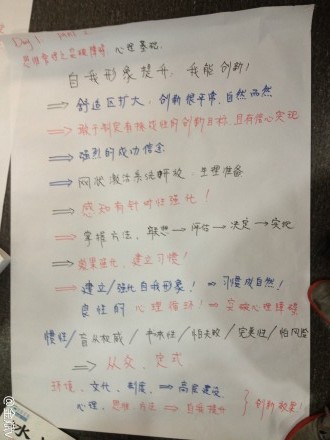 Day 1. Part 2
思维惯性之突破障碍, 心理基础.
自我形象提升, 我能创新!
⇒ 舒适区扩大, 创新很平常, 自然而然
⇒ 敢于制定有挑战性的创新目标, 且有信心实现
⇒ 强烈的成功信念
⇒ 网状激活系统开放, 生理准备
⇒ 感知有针对性强化!
⇒ 掌握方法, 联想 → 评估 → 决定 → 实现
⇒ 效果强化, 建立习惯!
⇒ 建立/强化自我形象! ⇒ 习惯成自然!
良性的心理循环! ⇒ 突破心理障碍
惯性/盲从权威/ /怕失败/完美性/怕风险
⇒ 从众、定式
环境、文化、制度、⇒ 高度建设
心理、思维、方法 ⇒ 自我提升
创新效果!